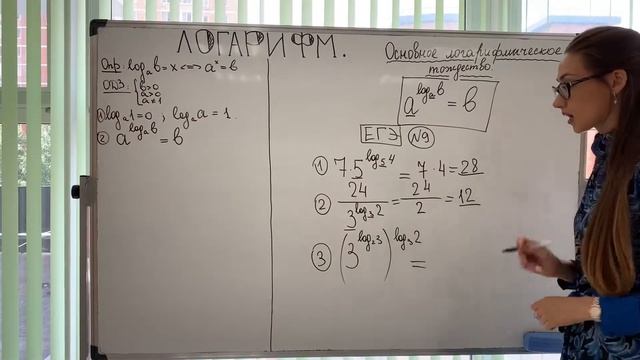 ЛОГАРИФМ.
Опр. logₐb=x<=>aˣ=b
ОДЗ: {b>0
a>0
a≠1
① logₐ1=0 ; logₐa=1.
② a^(logₐb) = b
Основное логарифмическое
тождество.
a^(logₐb) = b
ЕГЭ №9
① 7·5^(log₅4) = 7·4=28
② 24/3^(log₃2) = 24/2 = 12
③ (3^(log₂3))^(log₃2) =